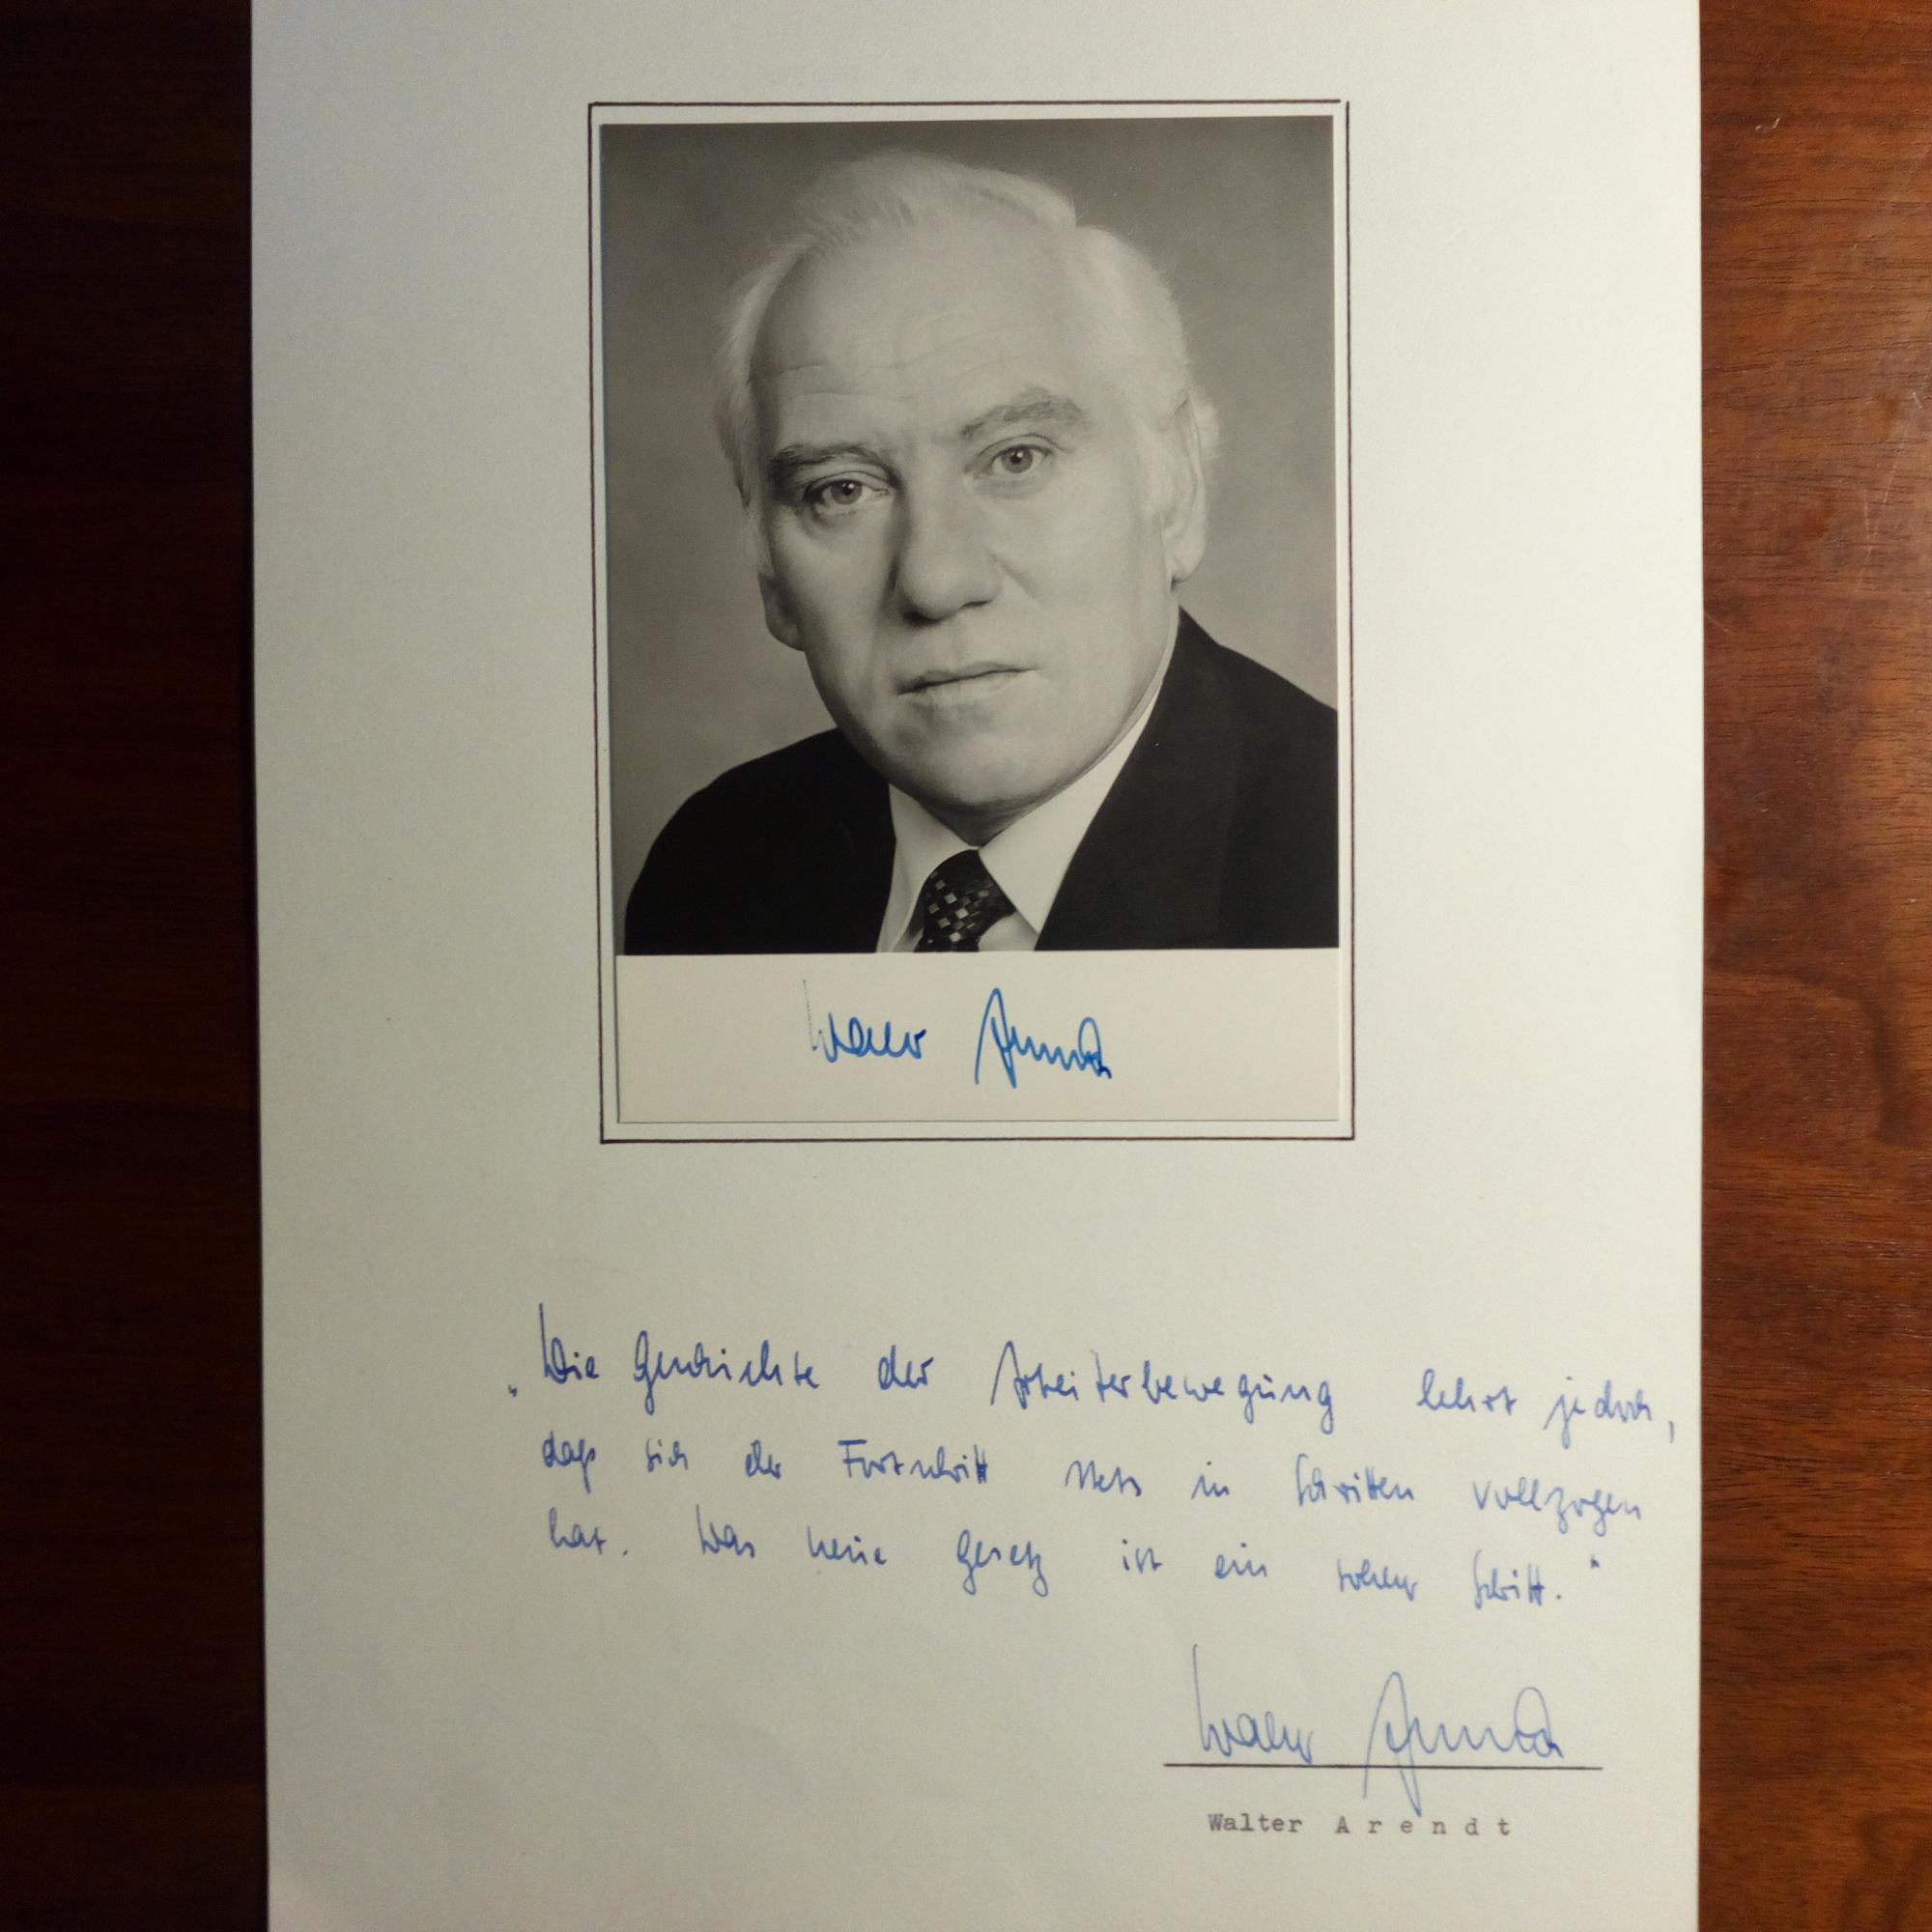 Walter Arendt
„Die Geschichte der Arbeiterbewegung lehrt jedoch,
daß sich der Fortschritt stets in Schritten vollzogen
hat. Das neue Gesetz ist ein solcher Schritt."
Walter Arendt
Walter A r e n d t